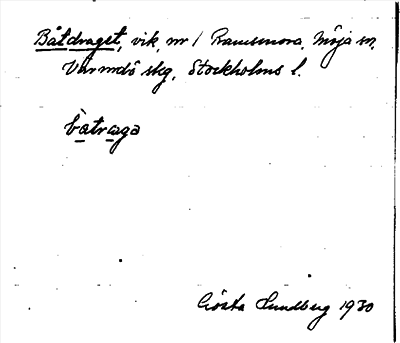 Båtdraget, vik, nr 1 Ramsmora, Möja sn,
Värmdö skg, Stockholms l.
Gösta Lundberg 1930